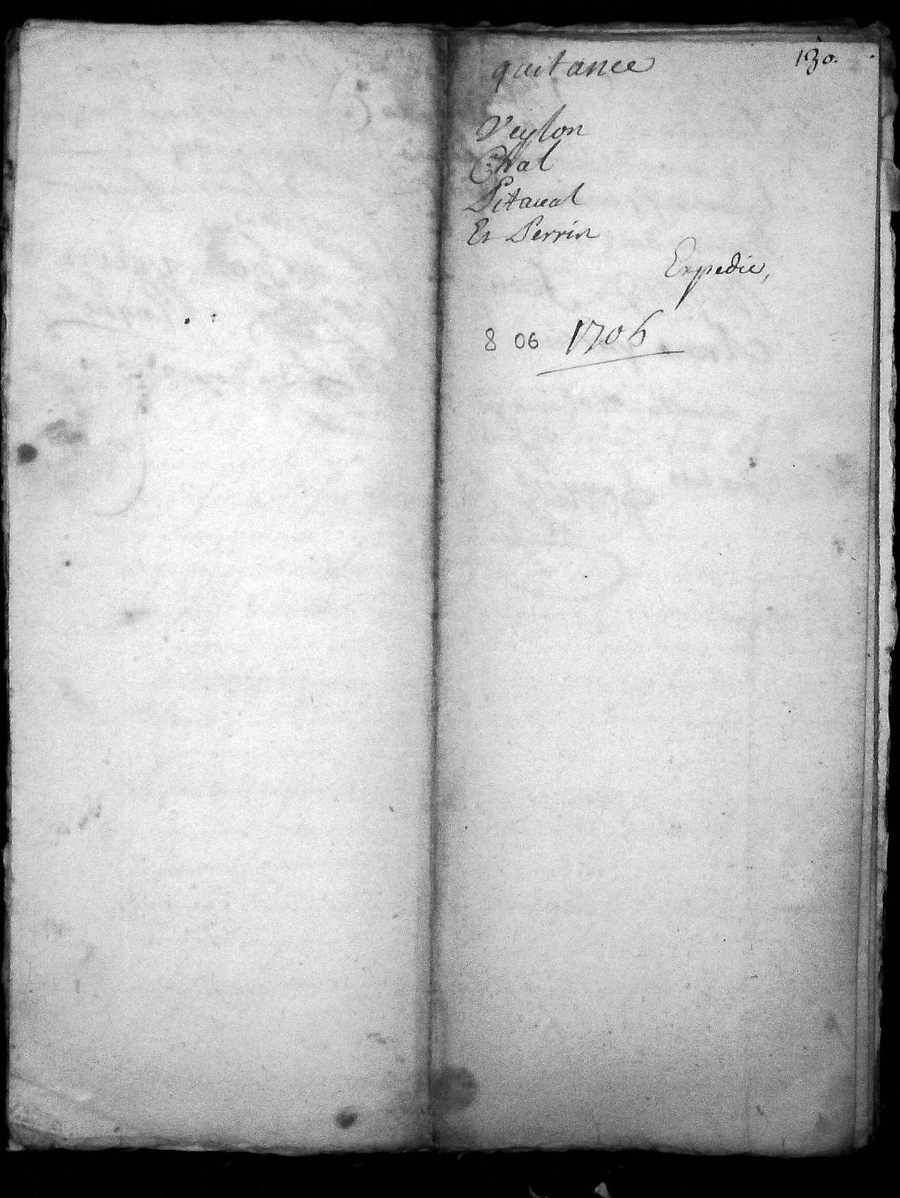 130.
quitance
Veylon
Chal
Pitaual
Et Perrin
Expedie,
8 06 1706